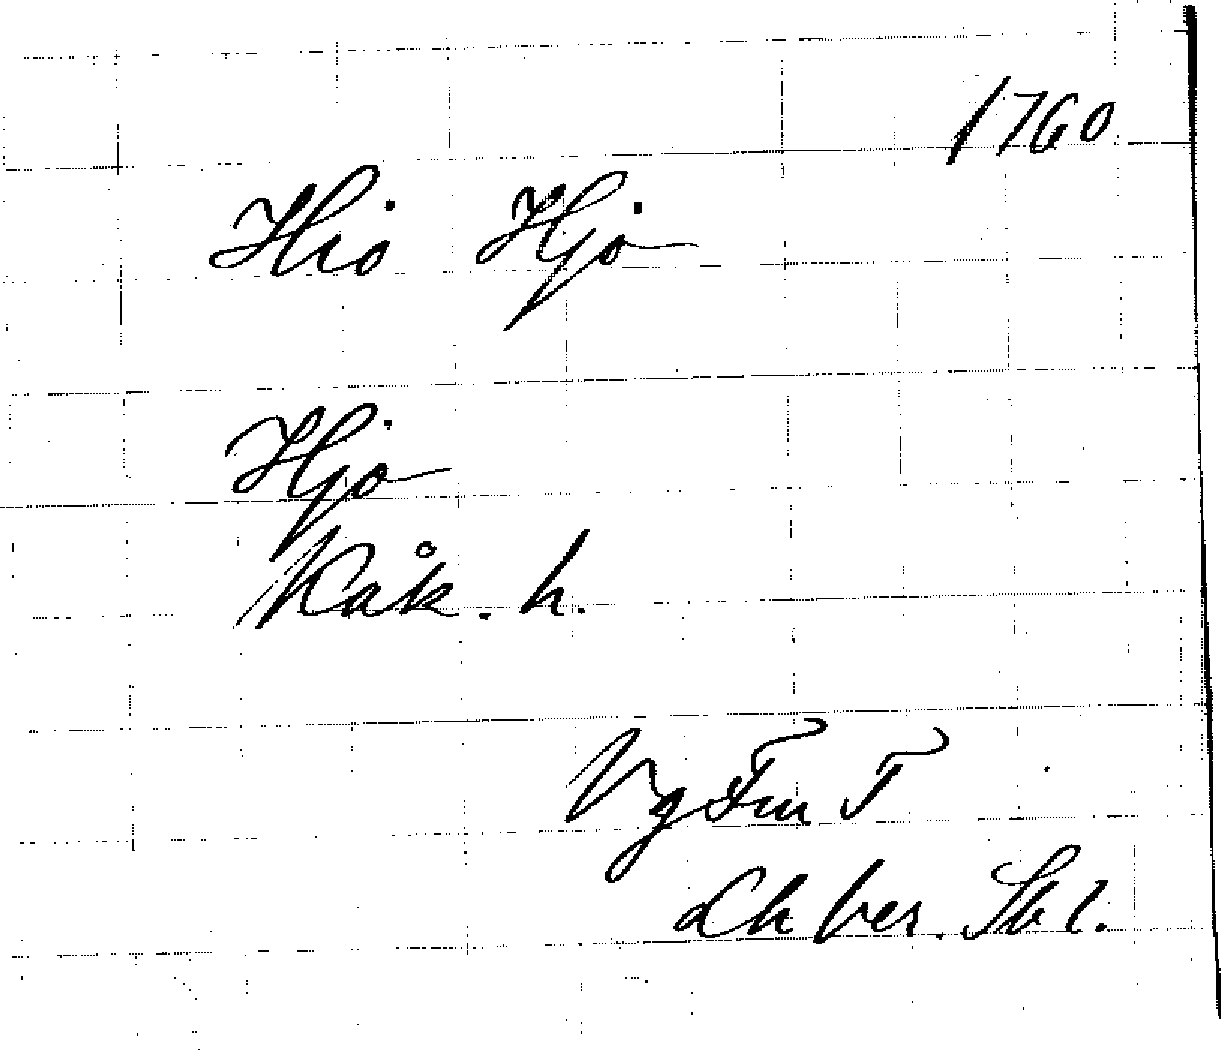 1760
Hio Hjo
Hjo
Kåk. h.
Vg Fm T
Lk ber. Sk 1.